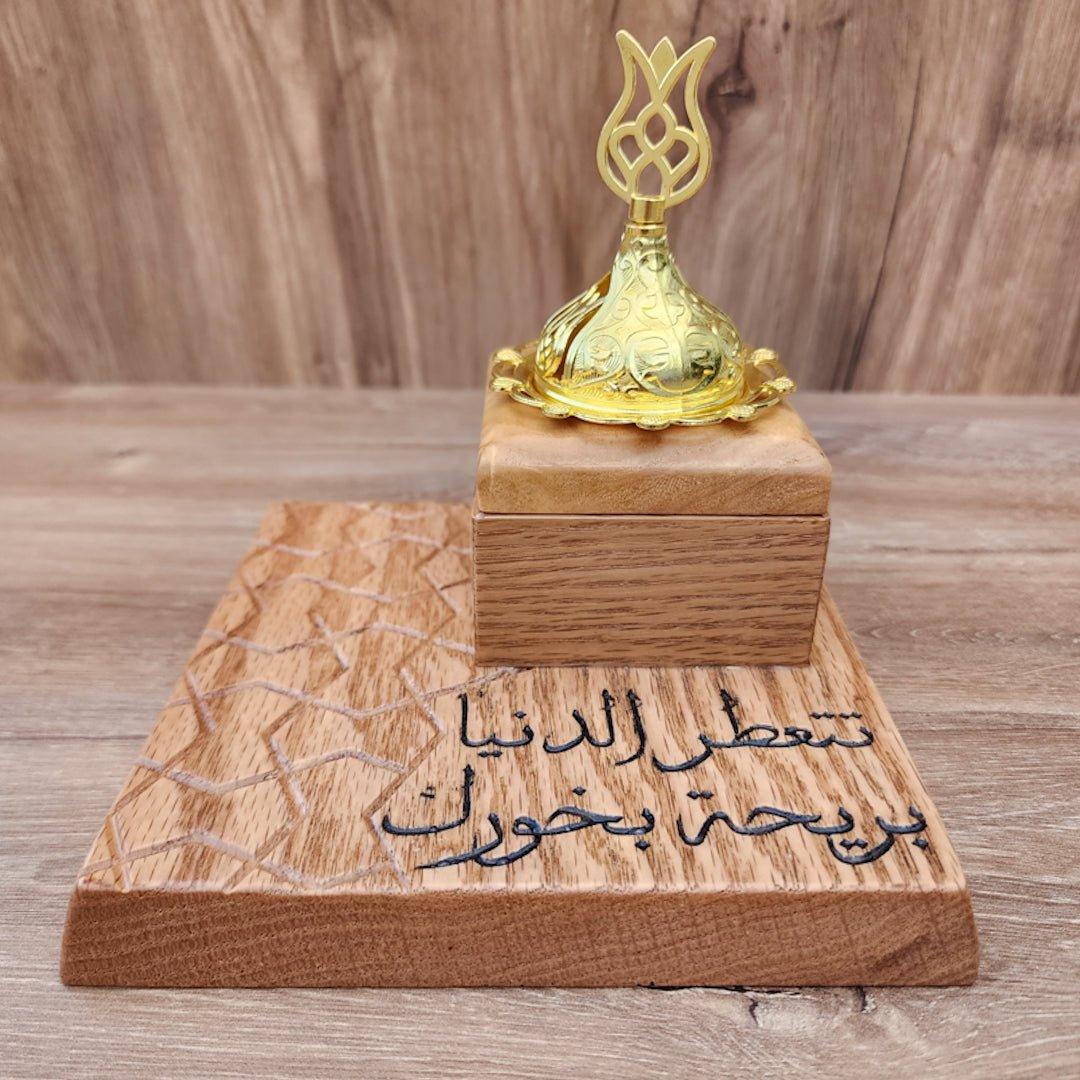 تتعطر الدنيا
بريحة بخورك